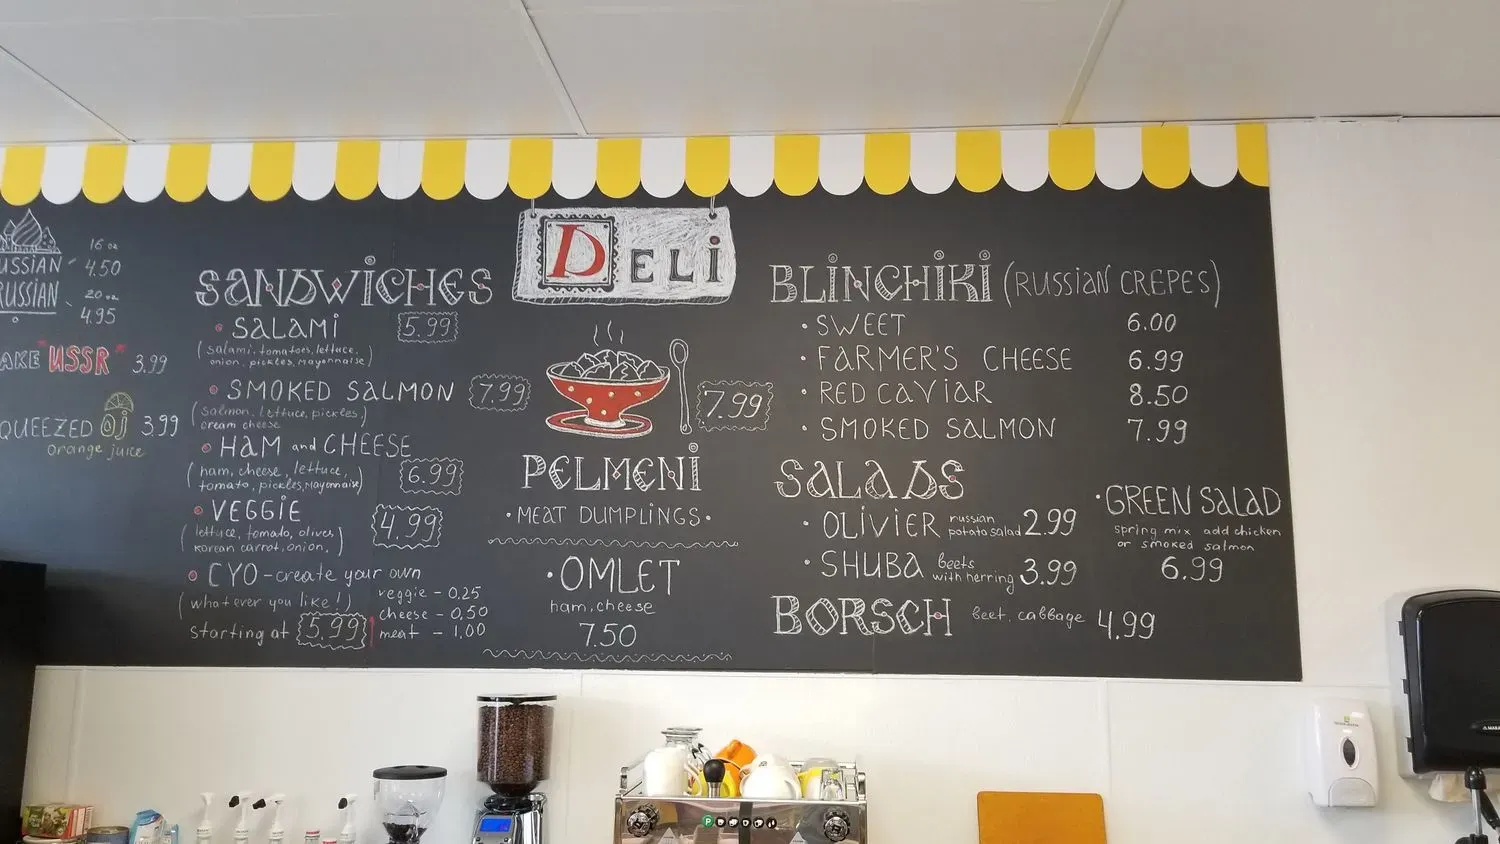 16 oz
RUSSIAN 4.50
RUSSIAN 20 oz
4.95
"USSR" 3.99
SQUEEZED OJ 3.99
orange juice
SANDWICHES
• SALAMI 5.99
(salami, tomatoes, lettuce,
onion, pickles, mayonnaise)
• SMOKED SALMON 7.99
(salmon, lettuce, pickles,)
cream cheese
• HAM and CHEESE
(ham, cheese, lettuce,
tomato, pickles, mayonnaise) 6.99
• VEGGIE
(lettuce, tomato, olives, 4.99
korean carrot, onion,)
• CYO - create your own
(whatever you like!)
starting at 5.99
veggie - 0.25
cheese - 0.50
meat - 1.00
DELI
7.99
PELMENI
• MEAT DUMPLINGS •
• OMLET
ham, cheese
7.50
BLINCHIKI (RUSSIAN CREPES)
• SWEET 6.00
• FARMER'S CHEESE 6.99
• RED CAVIAR 8.50
• SMOKED SALMON 7.99
SALADS
• OLIVIER russian
potato salad 2.99
• SHUBA beets
with herring 3.99
• GREEN SALAD
spring mix add chicken
or smoked salmon
6.99
BORSCH beet, cabbage 4.99